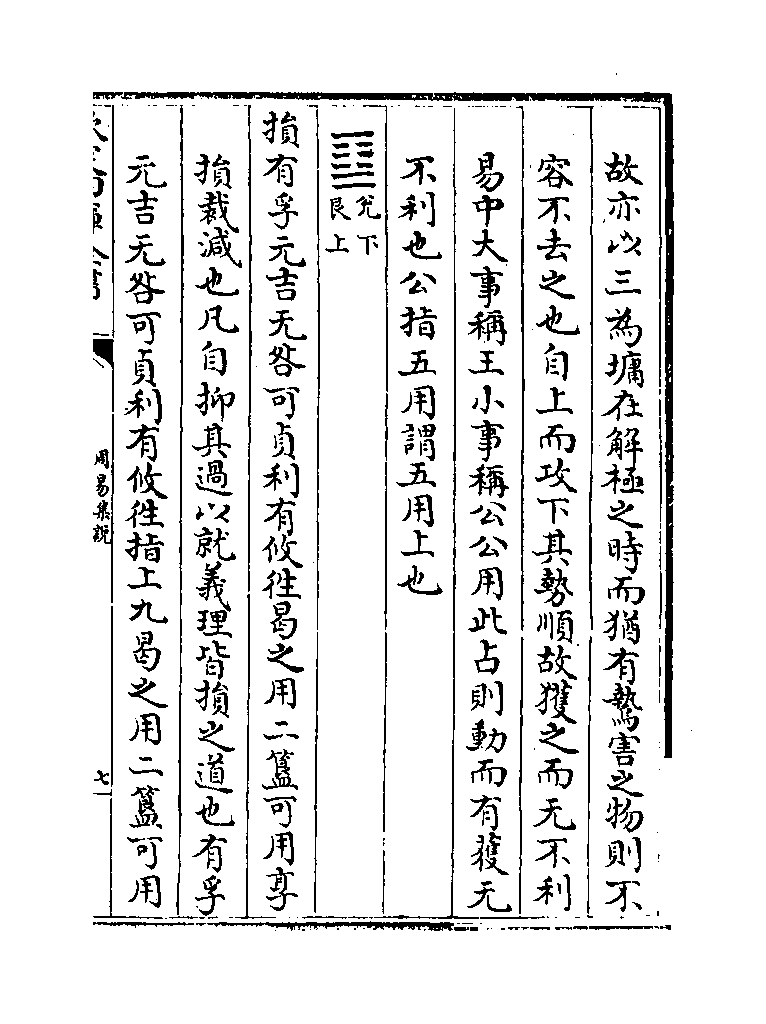 故亦以三為墉在解極之時而猶有鷙害之物則不
容不去之也自上而攻下其勢順故獲之而无不利
易中大事稱王小事稱公公用此占則動而有獲无
不利也公指五用謂五用上也
䷨兌下
艮上
損有孚元吉无咎可貞利有攸往曷之用二簋可用享
損裁減也凡自抑其過以就義理皆損之道也有孚
元吉无咎可貞利有攸往指上九曷之用二簋可用
周易集說
七